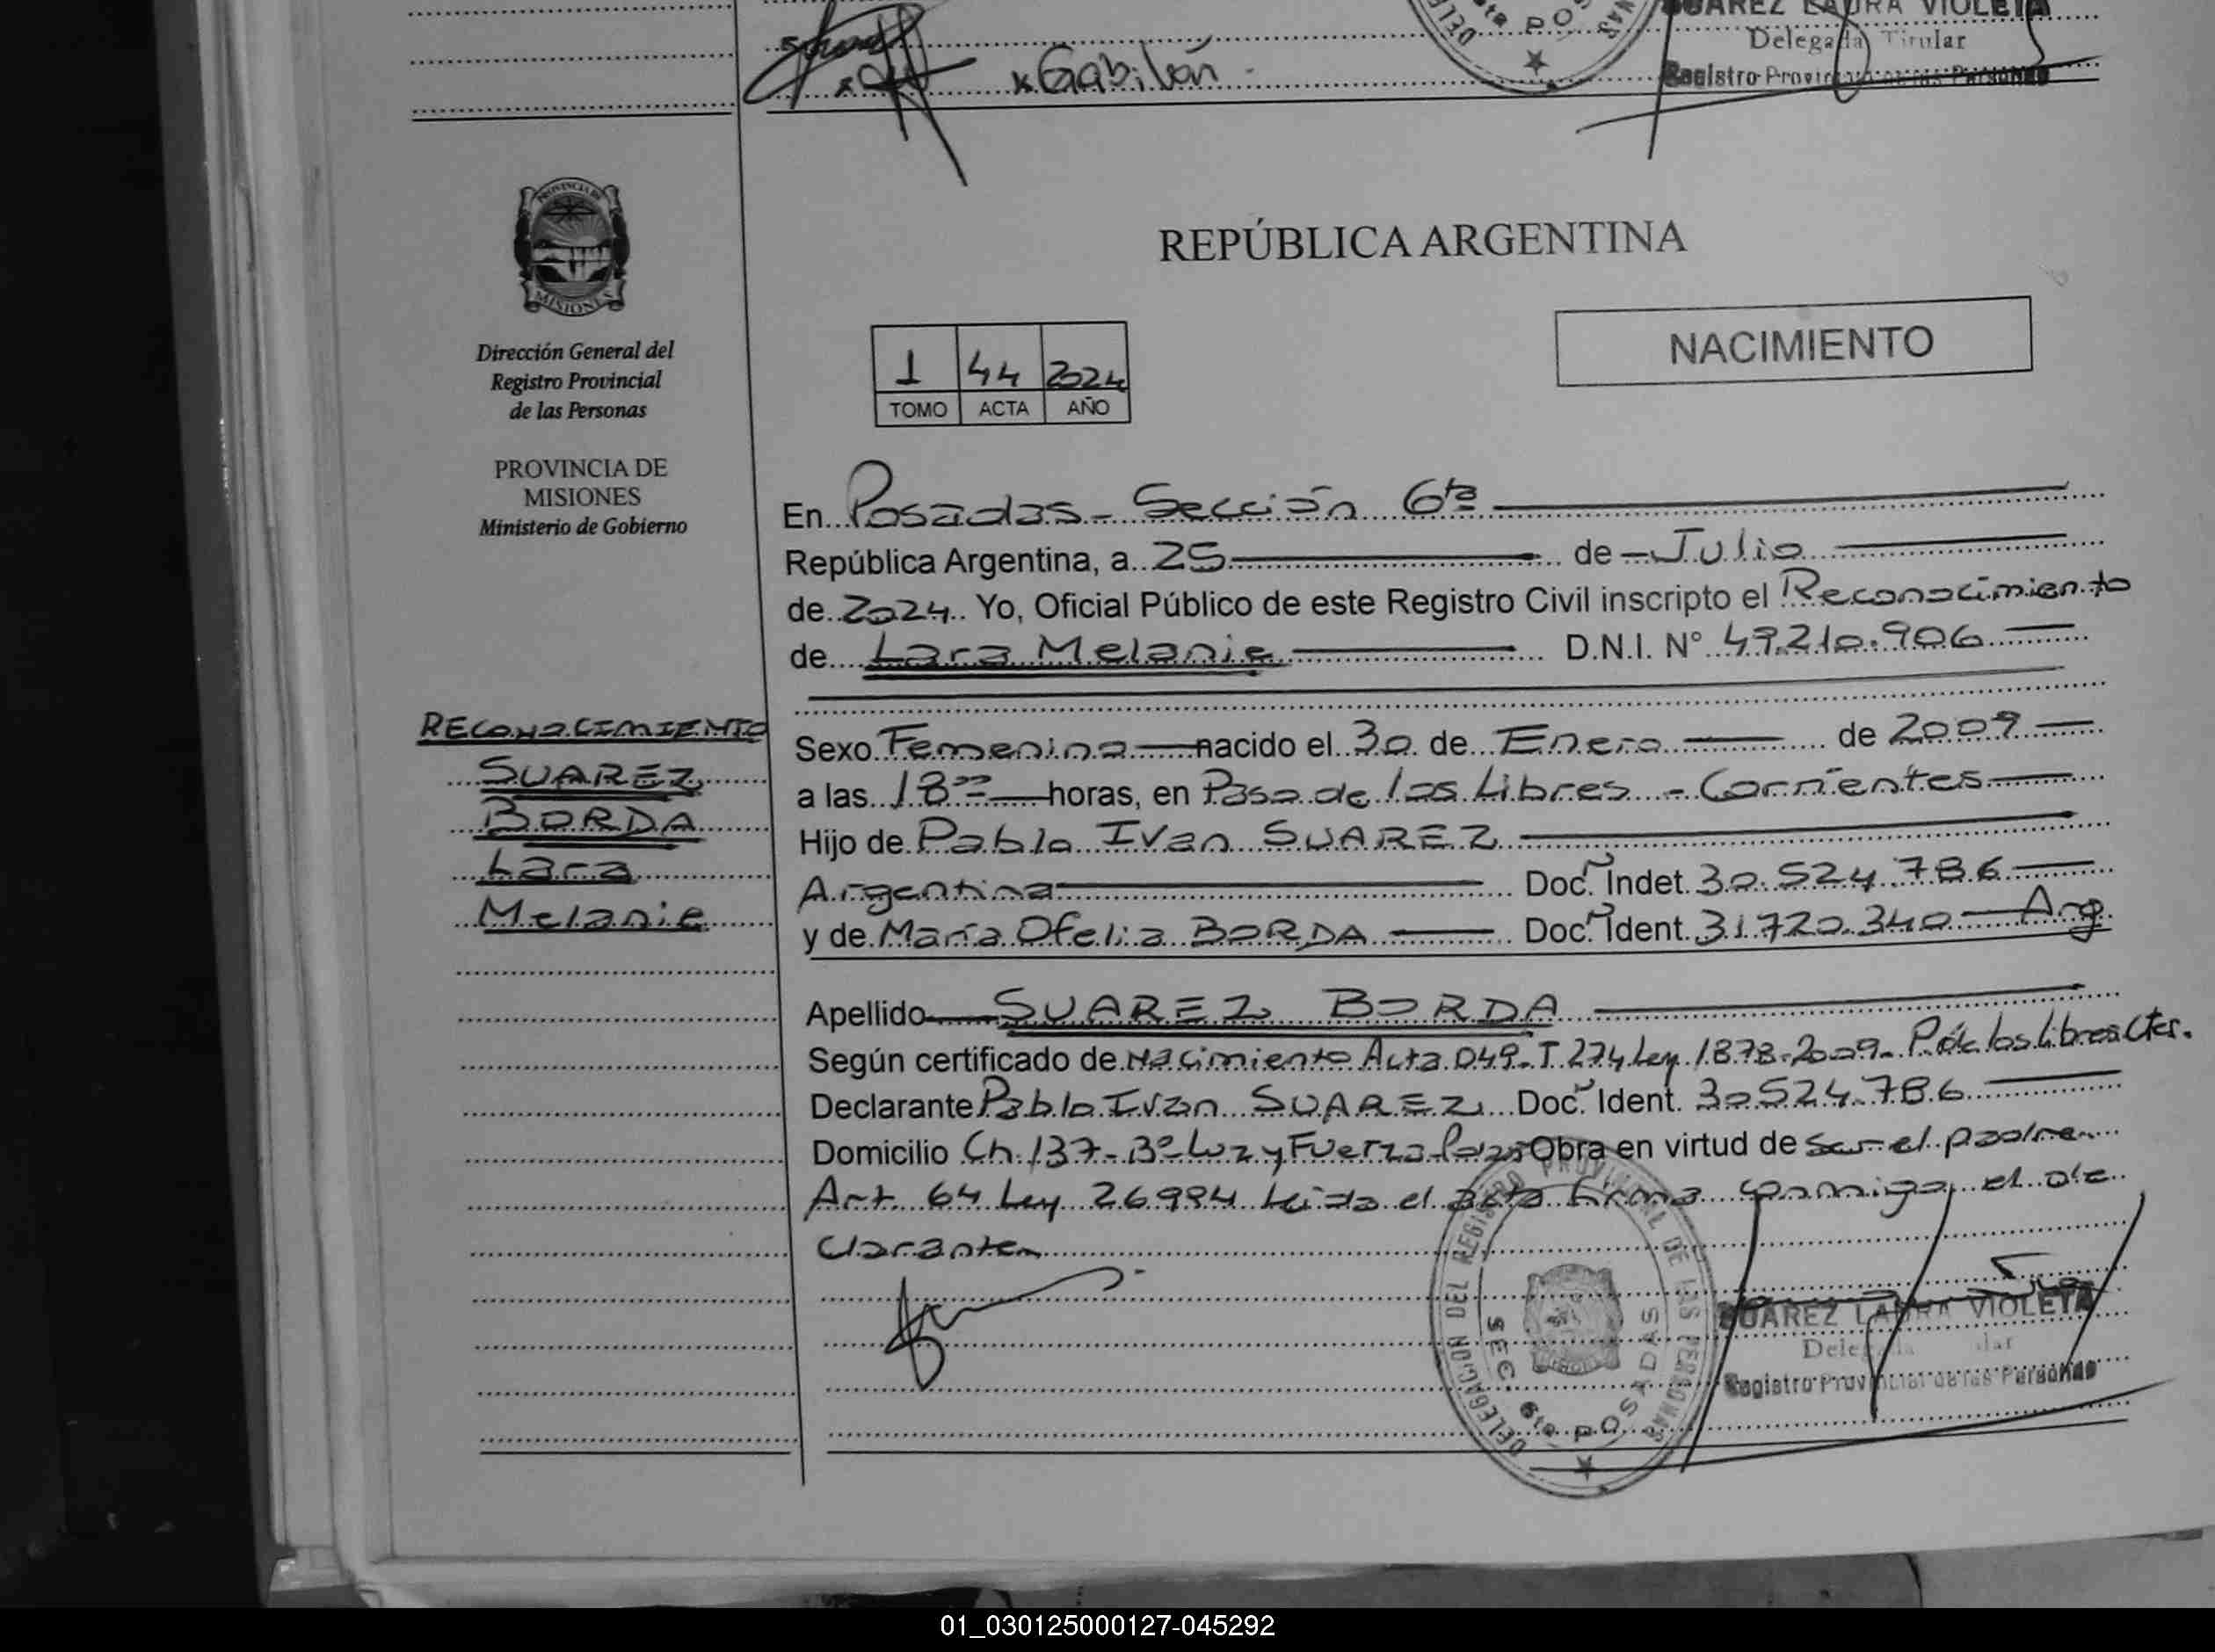 SUAREZ LAURA VIOLETA
Delegada Titular
Registro Provincial de las Personas
x Gabilán
REPÚBLICA ARGENTINA
NACIMIENTO
PROVINCIA DE
MISIONES
Dirección General del
Registro Provincial
de las Personas
PROVINCIA DE
MISIONES
Ministerio de Gobierno
1 44 2024
TOMO ACTA AÑO
En Posadas - Sección 6ta
República Argentina, a 25 de Julio
de 2024 Yo, Oficial Público de este Registro Civil inscripto el Reconocimiento
de Lara Melanie D.N.I. N° 49.210.906
RECONOCIMIENTO
SUAREZ
BORDA
Lara
Melanie
Sexo Femenino nacido el 30 de Enero de 2009
a las 18 horas, en Paso de los Libres - Corrientes
Hijo de Pablo Ivan SUAREZ
Argentina Doc. Indet. 30.524.786
y de María Ofelia BORDA Doc. Ident. 31.720.340 Arg
Apellido SUAREZ BORDA
Según certificado de Nacimiento Acta 049-T 274 Ley 1878-2009- Pdlos Libres Ctes.
Declarante Pablo Ivan SUAREZ Doc. Ident. 30524.786
Domicilio Ch 137-B° Luz y Fuerza Obra en virtud de ser el padre
Art. 64 Ley 26994 Leida el acta firma conmigo el de
clarante
DELEGACION DEL REGISTRO PROVINCIAL DE LAS PERSONAS
SEC. 6ta POSADAS
SUAREZ LAURA VIOLETA
Registro Provincial de las Personas
01_030125000127-045292